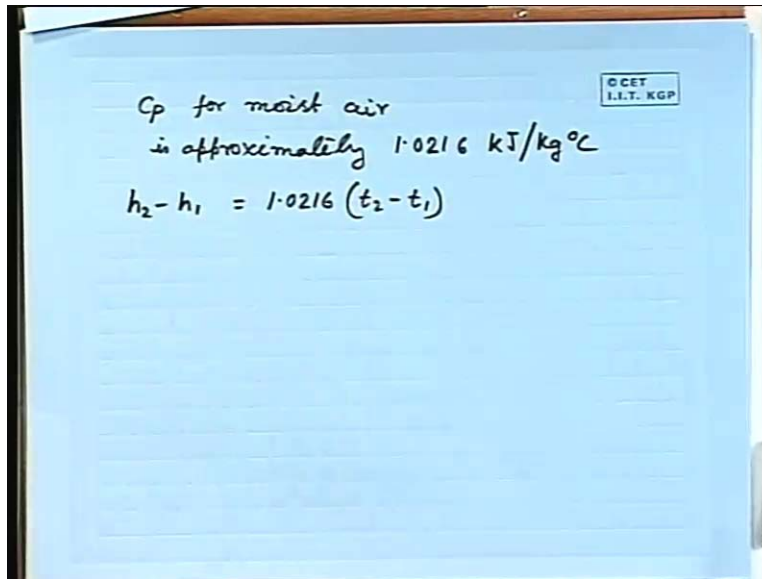 © CET
I.I.T. KGP
Cp for moist air
is approximately 1.0216 kJ/kg°C
h₂ - h₁ = 1.0216 (t₂ - t₁)